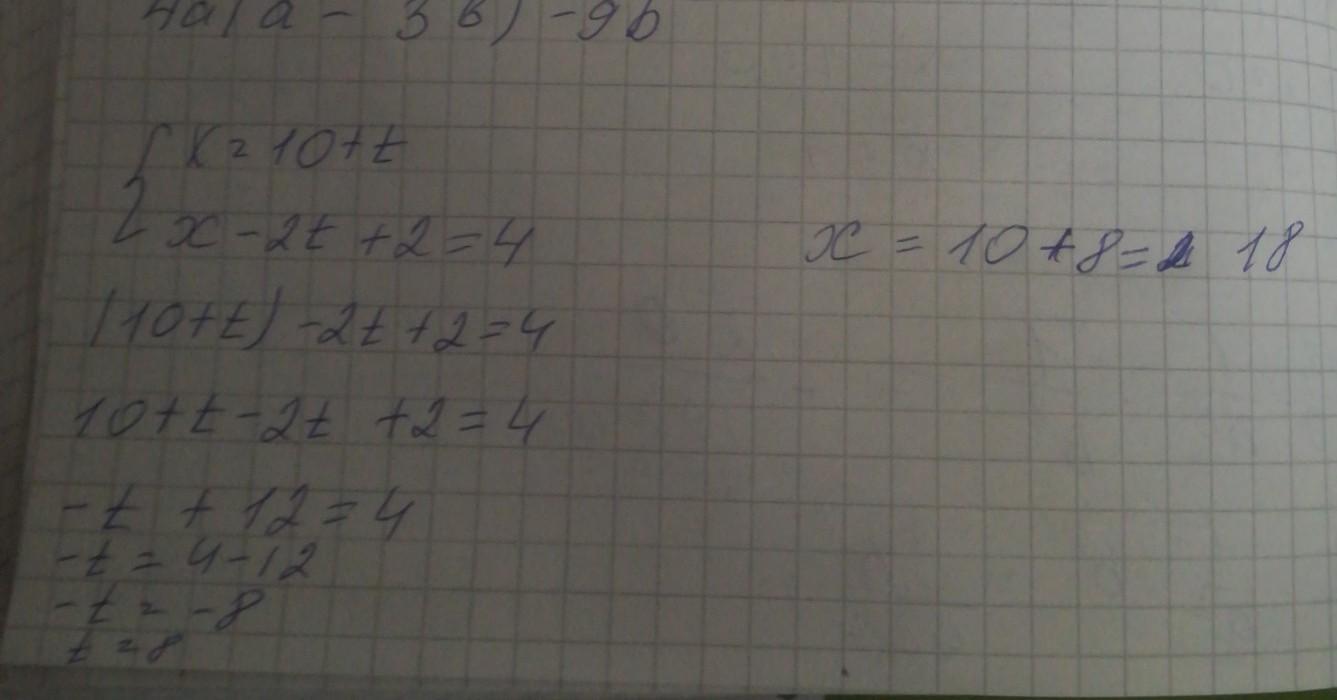 4a(a - 3b) - 9b
{ x = 10 + t
x - 2t + 2 = 4
(10 + t) - 2t + 2 = 4
10 + t - 2t + 2 = 4
-t + 12 = 4
-t = 4 - 12
-t = -8
t = 8
x = 10 + 8 = 18